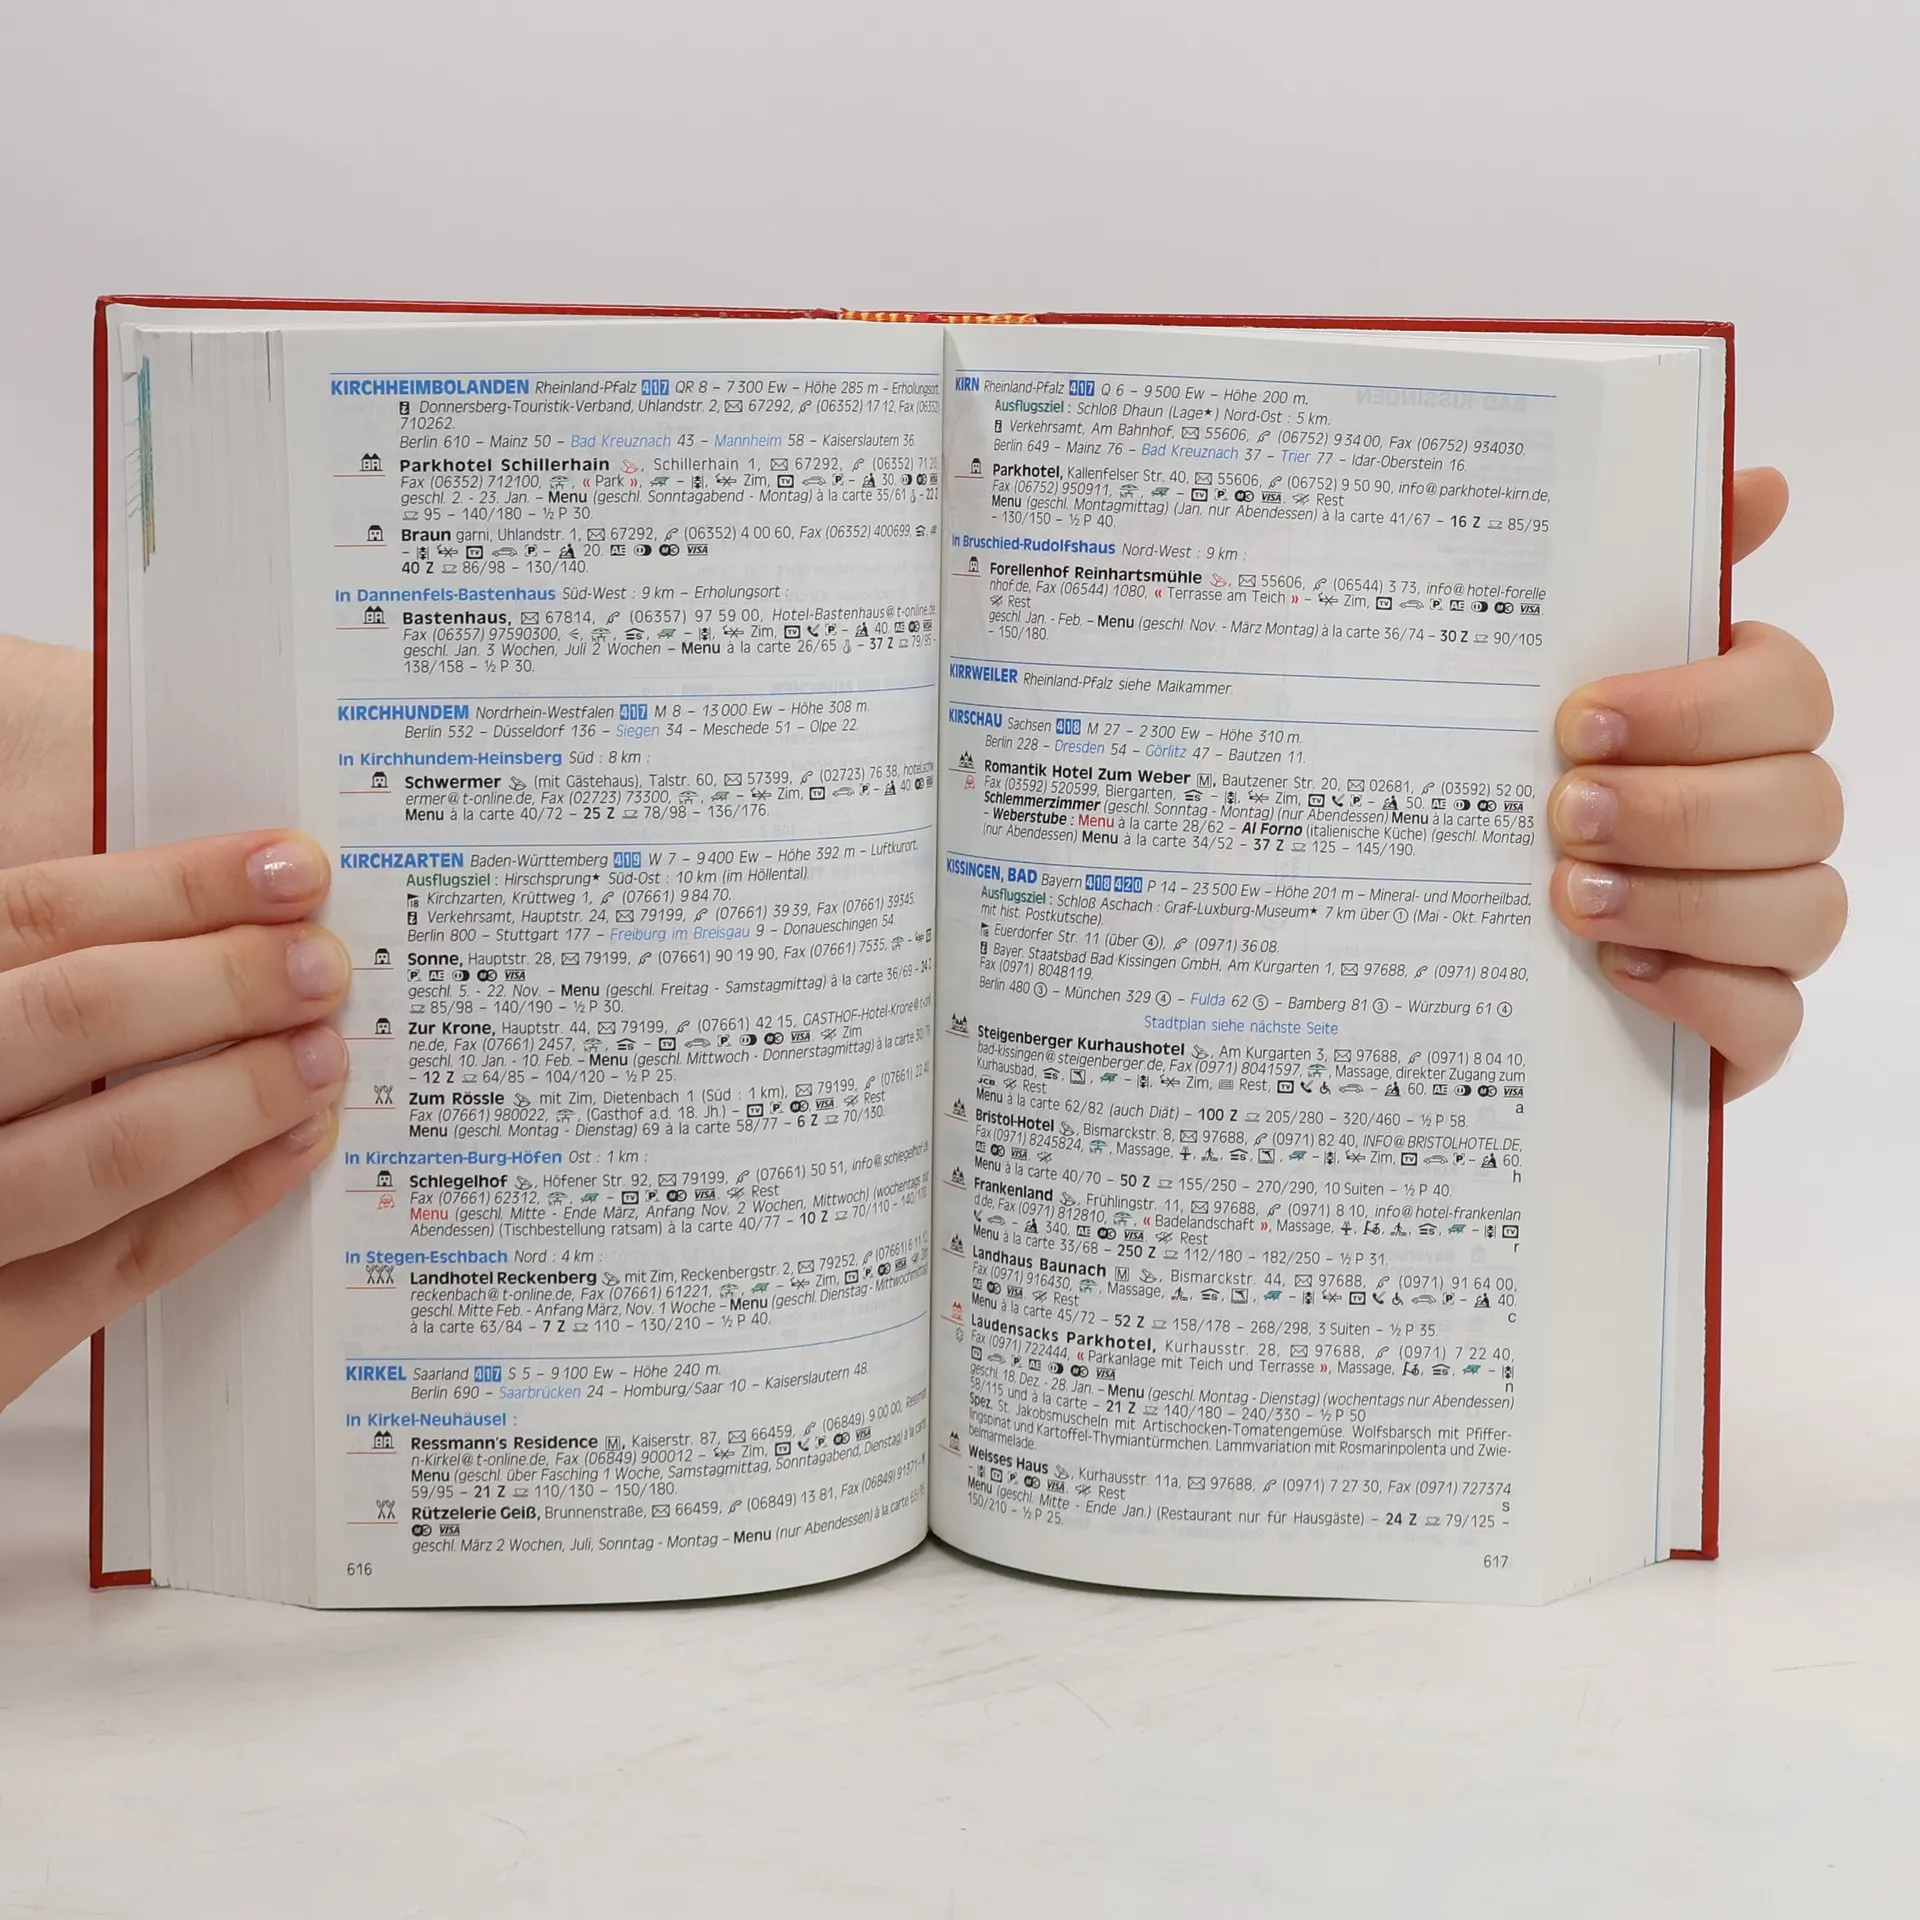 KIRCHHEIMBOLANDEN Rheinland-Pfalz 417 QR 8 – 7 300 Ew – Höhe 285 m – Erholungsort.
Donnersberg-Touristik-Verband, Uhlandstr. 2, ✉ 67292, (06352) 17 12, Fax (06352)
710262.
Berlin 610 – Mainz 50 – Bad Kreuznach 43 – Mannheim 58 – Kaiserslautern 36.
Parkhotel Schillerhain, Schillerhain 1, ✉ 67292, (06352) 71 20,
Fax (06352) 712100, « Park », – Zim, TV P – 30. VISA
geschl. 2. - 23. Jan. – Menu (geschl. Sonntagabend - Montag) à la carte 35/61 – 22 Z
95 – 140/180 – ½ P 30.
Braun garni, Uhlandstr. 1, ✉ 67292, (06352) 4 00 60, Fax (06352) 400699,
– TV P – 20. AE VISA
40 Z 86/98 – 130/140.
In Dannenfels-Bastenhaus Süd-West : 9 km – Erholungsort :
Bastenhaus, ✉ 67814, (06357) 97 59 00, Hotel-Bastenhaus@t-online.de,
Fax (06357) 97590300, – Zim, TV P – 40. AE VISA
geschl. Jan. 3 Wochen, Juli 2 Wochen – Menu à la carte 26/65 – 37 Z 79/95 -
138/158 – ½ P 30.
KIRCHHUNDEM Nordrhein-Westfalen 417 M 8 – 13 000 Ew – Höhe 308 m.
Berlin 532 – Düsseldorf 136 – Siegen 34 – Meschede 51 – Olpe 22.
In Kirchhundem-Heinsberg Süd : 8 km :
Schwermer (mit Gästehaus), Talstr. 60, ✉ 57399, (02723) 76 38, hotel.schw
ermer@t-online.de, Fax (02723) 73300, – Zim, TV P – 40. VISA
Menu à la carte 40/72 – 25 Z 78/98 – 136/176.
KIRCHZARTEN Baden-Württemberg 419 W 7 – 9 400 Ew – Höhe 392 m – Luftkurort.
Ausflugsziel : Hirschsprung★ Süd-Ost : 10 km (im Höllental).
18 Kirchzarten, Krüttweg 1, (07661) 9 84 70.
Verkehrsamt, Hauptstr. 24, ✉ 79199, (07661) 39 39, Fax (07661) 39345.
Berlin 800 – Stuttgart 177 – Freiburg im Breisgau 9 – Donaueschingen 54.
Sonne, Hauptstr. 28, ✉ 79199, (07661) 90 19 90, Fax (07661) 7535,
P AE VISA
geschl. 5. - 22. Nov. – Menu (geschl. Freitag - Samstagmittag) à la carte 36/69 – 24 Z
85/98 – 140/190 – ½ P 30.
Zur Krone, Hauptstr. 44, ✉ 79199, (07661) 42 15, GASTHOF-Hotel-Krone@t-onli
ne.de, Fax (07661) 2457, – TV P VISA Zim
geschl. 10. Jan. - 10. Feb. – Menu (geschl. Mittwoch - Donnerstagmittag) à la carte
– 12 Z 64/85 – 104/120 – ½ P 25.
Zum Rössle mit Zim, Dietenbach 1 (Süd : 1 km), ✉ 79199, (07661) 22 40,
Fax (07661) 980022, (Gasthof a.d. 18. Jh.) – TV P VISA Rest
Menu (geschl. Montag - Dienstag) 69 à la carte 58/77 – 6 Z 70/130.
In Kirchzarten-Burg-Höfen Ost : 1 km :
Schlegelhof, Höfener Str. 92, ✉ 79199, (07661) 50 51, info@schlegelhof.de,
Fax (07661) 62312, – TV P VISA Rest
Menu (geschl. Mitte - Ende März, Anfang Nov. 2 Wochen, Mittwoch) (wochentags nur
Abendessen) (Tischbestellung ratsam) à la carte 40/77 – 10 Z 70/110 – 140/170.
In Stegen-Eschbach Nord : 4 km :
Landhotel Reckenberg mit Zim, Reckenbergstr. 2, ✉ 79252, (07661) 6 11 12,
reckenbach@t-online.de, Fax (07661) 61221, – Zim, TV P VISA Zim
geschl. Mitte Feb. - Anfang März, Nov. 1 Woche – Menu (geschl. Dienstag - Mittwochmittag)
à la carte 63/84 – 7 Z 110 – 130/210 – ½ P 40.
KIRKEL Saarland 417 S 5 – 9 100 Ew – Höhe 240 m.
Berlin 690 – Saarbrücken 24 – Homburg/Saar 10 – Kaiserslautern 48.
In Kirkel-Neuhäusel :
Ressmann's Residence M, Kaiserstr. 87, ✉ 66459, (06849) 9 00 00, Ressman
n-Kirkel@t-online.de, Fax (06849) 900012 – Zim, TV P VISA
Menu (geschl. über Fasching 1 Woche, Samstagmittag, Sonntagabend, Dienstag) à la carte
59/95 – 21 Z 110/130 – 150/180.
Rützelerie Geiß, Brunnenstraße, ✉ 66459, (06849) 13 81, Fax (06849) 91371 –
VISA
geschl. März 2 Wochen, Juli, Sonntag - Montag – Menu (nur Abendessen) à la carte
616
KIRN Rheinland-Pfalz 417 Q 6 – 9 500 Ew – Höhe 200 m.
Ausflugsziel : Schloß Dhaun (Lage★) Nord-Ost : 5 km.
Verkehrsamt, Am Bahnhof, ✉ 55606, (06752) 9 34 00, Fax (06752) 934030.
Berlin 649 – Mainz 76 – Bad Kreuznach 37 – Trier 77 – Idar-Oberstein 16.
Parkhotel, Kallenfelser Str. 40, ✉ 55606, (06752) 9 50 90, info@parkhotel-kirn.de,
Fax (06752) 950911, – TV P VISA Rest
Menu (geschl. Montagmittag) (Jan. nur Abendessen) à la carte 41/67 – 16 Z 85/95
– 130/150 – ½ P 40.
In Bruschied-Rudolfshaus Nord-West : 9 km :
Forellenhof Reinhartsmühle, ✉ 55606, (06544) 3 73, info@hotel-forelle
nhof.de, Fax (06544) 1080, « Terrasse am Teich » – Zim, TV P AE VISA.
Rest
geschl. Jan. - Feb. – Menu (geschl. Nov. - März Montag) à la carte 36/74 – 30 Z 90/105
– 150/180.
KIRRWEILER Rheinland-Pfalz siehe Maikammer.
KIRSCHAU Sachsen 418 M 27 – 2 300 Ew – Höhe 310 m.
Berlin 228 – Dresden 54 – Görlitz 47 – Bautzen 11.
Romantik Hotel Zum Weber M, Bautzener Str. 20, ✉ 02681, (03592) 52 00,
Fax (03592) 520599, Biergarten, – Zim, TV P – 50. AE VISA
Schlemmerzimmer (geschl. Sonntag - Montag) (nur Abendessen) Menu à la carte 65/83
– Weberstube : Menu à la carte 28/62 – Al Forno (italienische Küche) (geschl. Montag)
(nur Abendessen) Menu à la carte 34/52 – 37 Z 125 – 145/190.
KISSINGEN, BAD Bayern 418 420 P 14 – 23 500 Ew – Höhe 201 m – Mineral- und Moorheilbad.
Ausflugsziel : Schloß Aschach : Graf-Luxburg-Museum★ 7 km über ① (Mai - Okt. Fahrten
mit hist. Postkutsche).
18 Euerdorfer Str. 11 (über ④), (0971) 36 08.
Bayer. Staatsbad Bad Kissingen GmbH, Am Kurgarten 1, ✉ 97688, (0971) 8 04 80,
Fax (0971) 8048119.
Berlin 480 ③ – München 329 ④ – Fulda 62 ⑤ – Bamberg 81 ③ – Würzburg 61 ④
Stadtplan siehe nächste Seite
Steigenberger Kurhaushotel, Am Kurgarten 3, ✉ 97688, (0971) 8 04 10,
bad-kissingen@steigenberger.de, Fax (0971) 8041597, Massage, direkter Zugang zum
Kurhausbad, – Zim, Rest, TV – 60. AE VISA
JCB Rest a
Menu à la carte 62/82 (auch Diät) – 100 Z 205/280 – 320/460 – ½ P 58.
Bristol-Hotel, Bismarckstr. 8, ✉ 97688, (0971) 82 40, INFO@BRISTOLHOTEL.DE,
Fax (0971) 8245824, Massage, – Zim, TV P – 60.
AE VISA h
Menu à la carte 40/70 – 50 Z 155/250 – 270/290, 10 Suiten – ½ P 40.
Frankenland, Frühlingstr. 11, ✉ 97688, (0971) 8 10, info@hotel-frankenlan
d.de, Fax (0971) 812810, « Badelandschaft », Massage, – TV
– 340. AE VISA Rest r
Menu à la carte 33/68 – 250 Z 112/180 – 182/250 – ½ P 31.
Landhaus Baunach M, Bismarckstr. 44, ✉ 97688, (0971) 91 64 00,
Fax (0971) 916430, Massage, – TV P – 40.
AE VISA Rest c
Menu à la carte 45/72 – 52 Z 158/178 – 268/298, 3 Suiten – ½ P 35.
Laudensacks Parkhotel, Kurhausstr. 28, ✉ 97688, (0971) 7 22 40,
Fax (0971) 722444, « Parkanlage mit Teich und Terrasse », Massage, –
TV P AE VISA n
geschl. 18. Dez. - 28. Jan. – Menu (geschl. Montag - Dienstag) (wochentags nur Abendessen)
58/115 und à la carte – 21 Z 140/180 – 240/330 – ½ P 50
Spez. St. Jakobsmuscheln mit Artischocken-Tomatengemüse. Wolfsbarsch mit Pfiffer-
lingspinat und Kartoffel-Thymiantürmchen. Lammvariation mit Rosmarinpolenta und Zwie-
belmarmelade.
Weisses Haus, Kurhausstr. 11a, ✉ 97688, (0971) 7 27 30, Fax (0971) 727374
– TV P VISA Rest s
Menu (geschl. Mitte - Ende Jan.) (Restaurant nur für Hausgäste) – 24 Z 79/125 –
150/210 – ½ P 25.
617